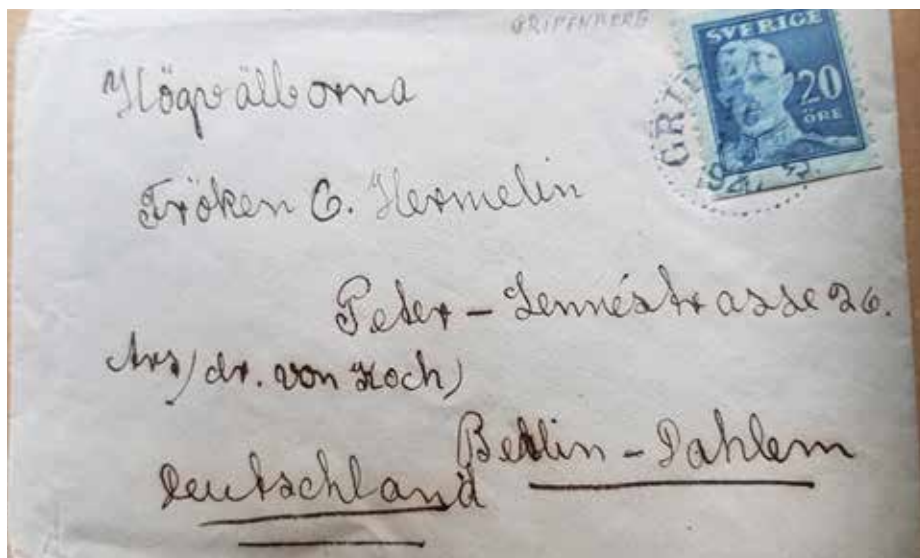 GRIPENBERG
SVERIGE
20
ÖRE
GRI
Högvälborna
Fröken C. Hermelin
Peter-Lennéstrasse 26.
Adr/dr. von Koch)
Berlin-Dahlem
Deutschland